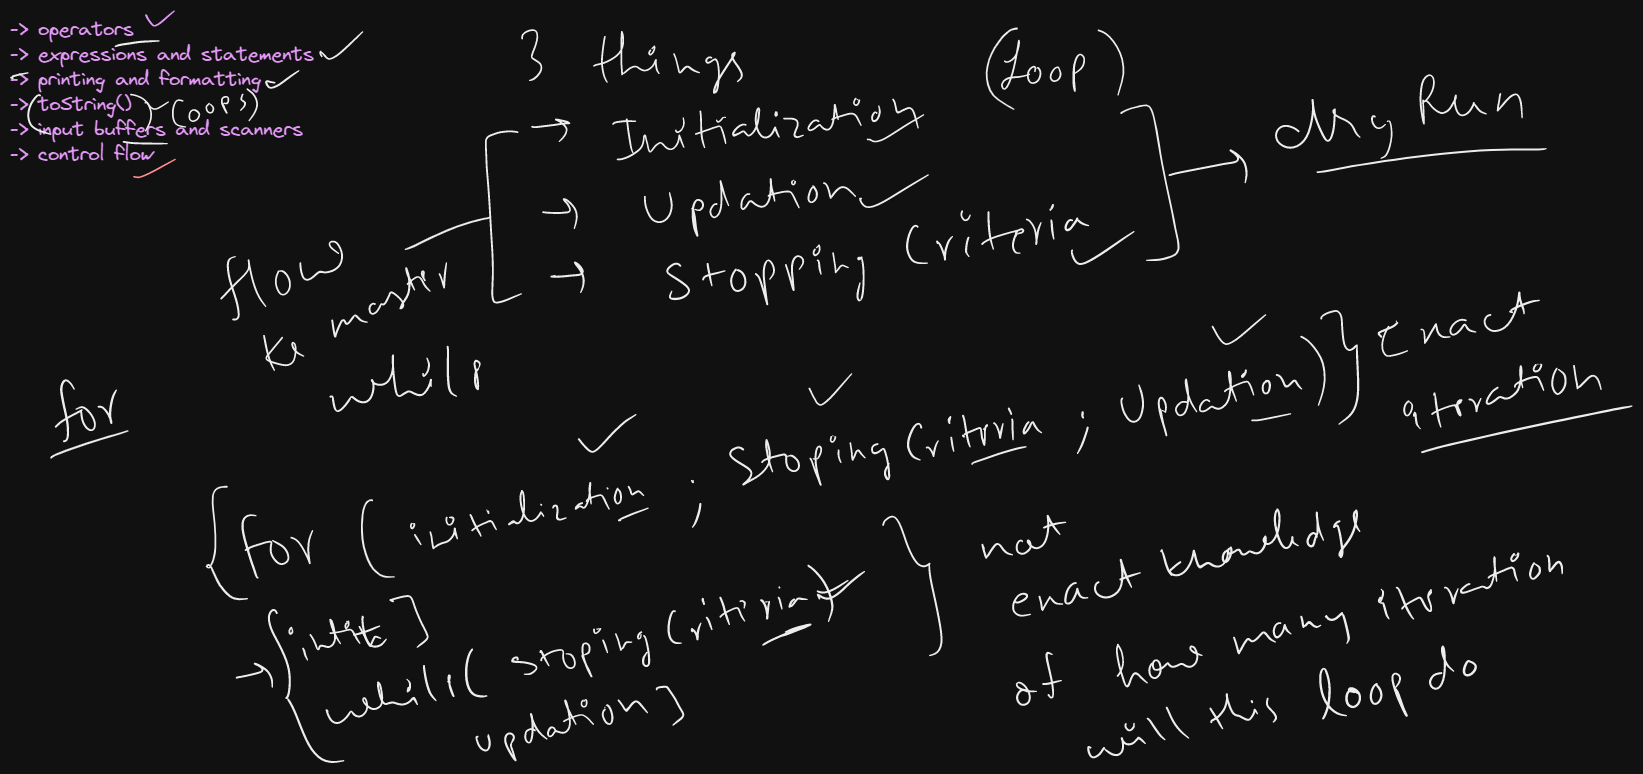 -> operators
-> expressions and statements
-> printing and formatting
-> toString() (OOPS)
-> input buffers and scanners
-> control flow
3 things (Loop)
→ Initialization
→ Updation
→ Stopping Criteria
→ Dry Run
flow
ke master
while
for
for ( initialization ; Stoping Criteria ; Updation )
Exact
iteration
while ( stoping Criteria )
updation
not
exact knowledge
of how many iteration
will this loop do